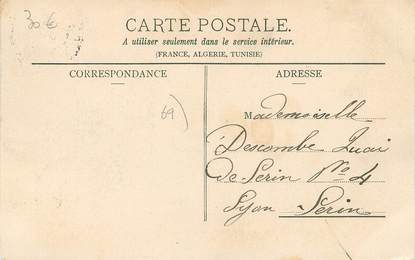 30 €
CARTE POSTALE.
A utiliser seulement dans le service intérieur.
(FRANCE, ALGERIE, TUNISIE)
CORRESPONDANCE
ADRESSE
69)
Mademoiselle
Descombe Quai
de Serin No 4
Lyon Serin